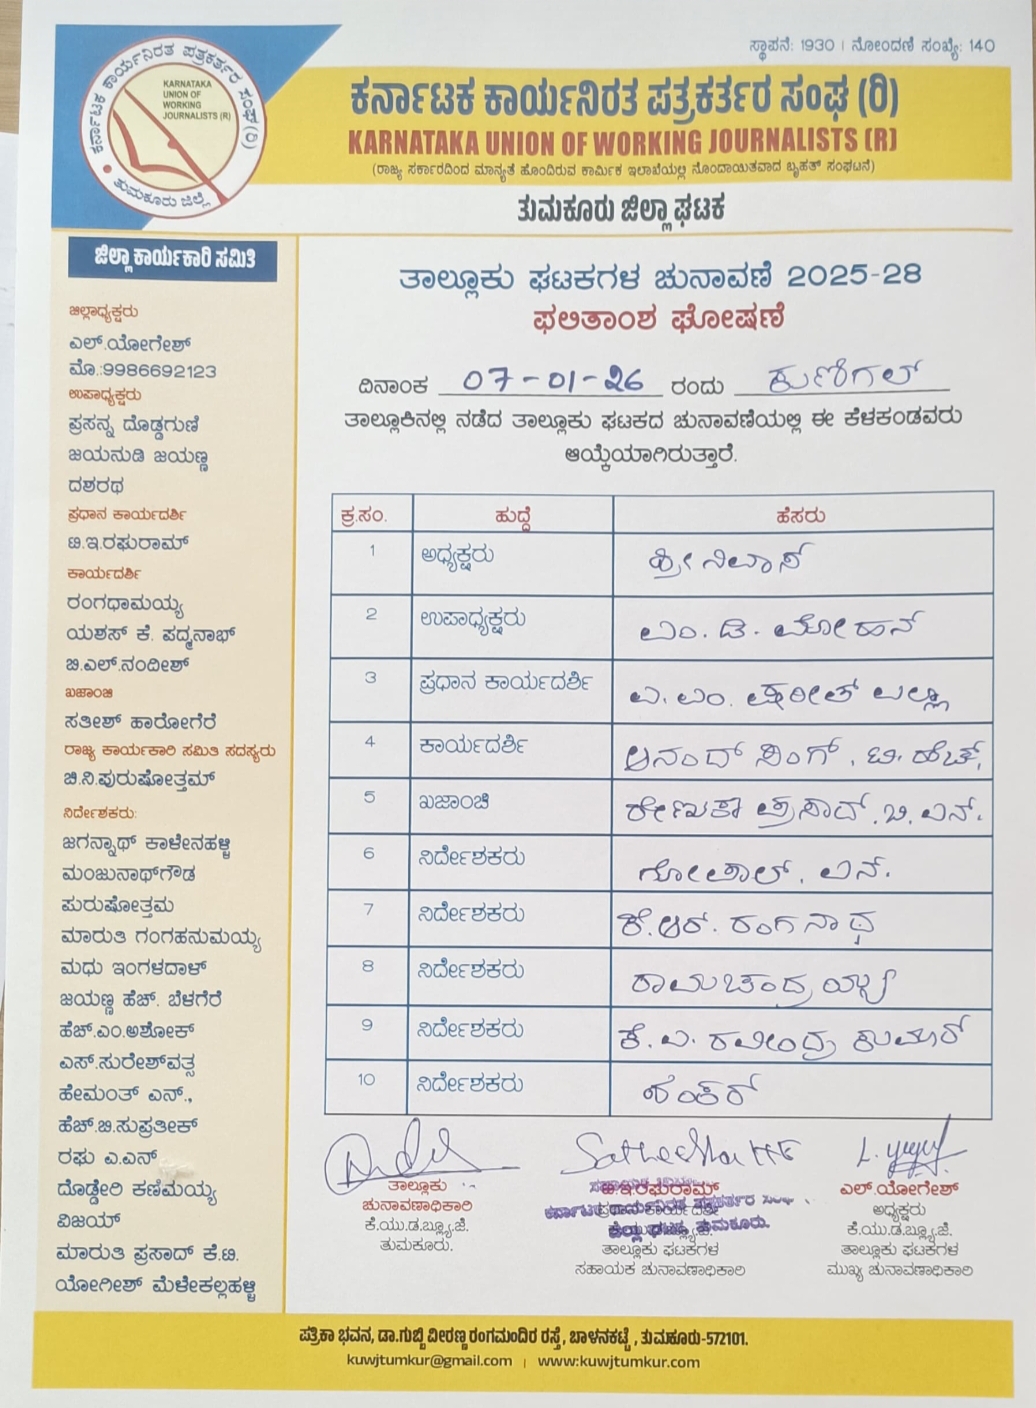 ಸ್ಥಾಪನೆ: 1930 । ನೋಂದಣಿ ಸಂಖ್ಯೆ: 140
ಕರ್ನಾಟಕ ಕಾರ್ಯನಿರತ ಪತ್ರಕರ್ತರ ಸಂಘ (ರಿ)
ತುಮಕೂರು ಜಿಲ್ಲೆ
KARNATAKA
UNION OF
WORKING
JOURNALISTS (R)
ಕರ್ನಾಟಕ ಕಾರ್ಯನಿರತ ಪತ್ರಕರ್ತರ ಸಂಘ (ರಿ)
KARNATAKA UNION OF WORKING JOURNALISTS (R)
(ರಾಜ್ಯ ಸರ್ಕಾರದಿಂದ ಮಾನ್ಯತೆ ಹೊಂದಿರುವ ಕಾರ್ಮಿಕ ಇಲಾಖೆಯಲ್ಲಿ ನೊಂದಾಯಿತವಾದ ಬೃಹತ್ ಸಂಘಟನೆ)
ತುಮಕೂರು ಜಿಲ್ಲಾ ಘಟಕ
ಜಿಲ್ಲಾ ಕಾರ್ಯಕಾರಿ ಸಮಿತಿ
ಜಿಲ್ಲಾಧ್ಯಕ್ಷರು
ಎಲ್.ಯೋಗೇಶ್
ಮೊ.:9986692123
ಉಪಾಧ್ಯಕ್ಷರು
ಪ್ರಸನ್ನ ದೊಡ್ಡಗುಣಿ
ಜಯನುಡಿ ಜಯಣ್ಣ
ದಶರಥ
ಪ್ರಧಾನ ಕಾರ್ಯದರ್ಶಿ
ಟಿ.ಇ.ರಘುರಾಮ್
ಕಾರ್ಯದರ್ಶಿ
ರಂಗಧಾಮಯ್ಯ
ಯಶಸ್ ಕೆ. ಪದ್ಮನಾಭ್
ಬಿ.ಎಲ್.ನಂದೀಶ್
ಖಜಾಂಚಿ
ಸತೀಶ್ ಹಾರೋಗೆರೆ
ರಾಜ್ಯ ಕಾರ್ಯಕಾರಿ ಸಮಿತಿ ಸದಸ್ಯರು
ಚಿ.ನಿ.ಪುರುಷೋತ್ತಮ್
ನಿರ್ದೇಶಕರು:
ಜಗನ್ನಾಥ್ ಕಾಳೇನಹಳ್ಳಿ
ಮಂಜುನಾಥ್‌ಗೌಡ
ಪುರುಷೋತ್ತಮ
ಮಾರುತಿ ಗಂಗಹನುಮಯ್ಯ
ಮಧು ಇಂಗಳದಾಳ್
ಜಯಣ್ಣ ಹೆಚ್. ಬೆಳಗೆರೆ
ಹೆಚ್.ಎಂ.ಅಶೋಕ್
ಎಸ್.ಸುರೇಶ್‌ವತ್ಸ
ಹೇಮಂತ್ ಎನ್.,
ಹೆಚ್.ಬಿ.ಸುಪ್ರತೀಕ್
ರಘು ಎ.ಎನ್
ದೊಡ್ಡೇರಿ ಕಣಿಮಯ್ಯ
ವಿಜಯ್
ಮಾರುತಿ ಪ್ರಸಾದ್ ಕೆ.ಟಿ.
ಯೋಗೀಶ್ ಮೆಳೇಕಲ್ಲಹಳ್ಳಿ
ತಾಲ್ಲೂಕು ಘಟಕಗಳ ಚುನಾವಣೆ 2025-28
ಫಲಿತಾಂಶ ಘೋಷಣೆ
ದಿನಾಂಕ 07-01-26 ರಂದು ಕುಣಿಗಲ್
ತಾಲ್ಲೂಕಿನಲ್ಲಿ ನಡೆದ ತಾಲ್ಲೂಕು ಘಟಕದ ಚುನಾವಣೆಯಲ್ಲಿ ಈ ಕೆಳಕಂಡವರು
ಆಯ್ಕೆಯಾಗಿರುತ್ತಾರೆ.
ಕ್ರ.ಸಂ. ಹುದ್ದೆ ಹೆಸರು
1 ಅಧ್ಯಕ್ಷರು ಶ್ರೀನಿವಾಸ್
2 ಉಪಾಧ್ಯಕ್ಷರು ಎಂ. ಡಿ. ಮೋಹನ್
3 ಪ್ರಧಾನ ಕಾರ್ಯದರ್ಶಿ ಎ. ಎಂ.
4 ಕಾರ್ಯದರ್ಶಿ ಆನಂದ್ ಸಿಂಗ್. ಟಿ. ಹೆಚ್.
5 ಖಜಾಂಚಿ ರೇಣುಕಾ ಪ್ರಸಾದ್. ಬಿ. ಎನ್.
6 ನಿರ್ದೇಶಕರು ಗೋಪಾಲ್. ಎನ್.
7 ನಿರ್ದೇಶಕರು ಕೆ.ಆರ್. ರಂಗನಾಥ
8 ನಿರ್ದೇಶಕರು ರಾಮಚಂದ್ರಯ್ಯ
9 ನಿರ್ದೇಶಕರು ಕೆ. ಎ. ರವೀಂದ್ರ ಕುಮಾರ್
10 ನಿರ್ದೇಶಕರು ಶಂಕರ್
ತಾಲ್ಲೂಕು
ಚುನಾವಣಾಧಿಕಾರಿ
ಕೆ.ಯು.ಡ.ಬ್ಲ್ಯೂ.ಜೆ.
ತುಮಕೂರು.
ಟಿ.ಇ.ರಘುರಾಮ್
ಪ್ರಧಾನ ಕಾರ್ಯದರ್ಶಿ
ತಾಲ್ಲೂಕು ಘಟಕಗಳ
ಸಹಾಯಕ ಚುನಾವಣಾಧಿಕಾರಿ
ಎಲ್.ಯೋಗೇಶ್
ಅಧ್ಯಕ್ಷರು
ಕೆ.ಯು.ಡ.ಬ್ಲ್ಯೂ.ಜೆ.
ತಾಲ್ಲೂಕು ಘಟಕಗಳ
ಮುಖ್ಯ ಚುನಾವಣಾಧಿಕಾರಿ
ಪತ್ರಿಕಾ ಭವನ, ಡಾ.ಗುಬ್ಬಿ ವೀರಣ್ಣ ರಂಗಮಂದಿರ ರಸ್ತೆ, ಬಾಳನಕಟ್ಟೆ, ತುಮಕೂರು-572101.
kuwjtumkur@gmail.com | www.kuwjtumkur.com